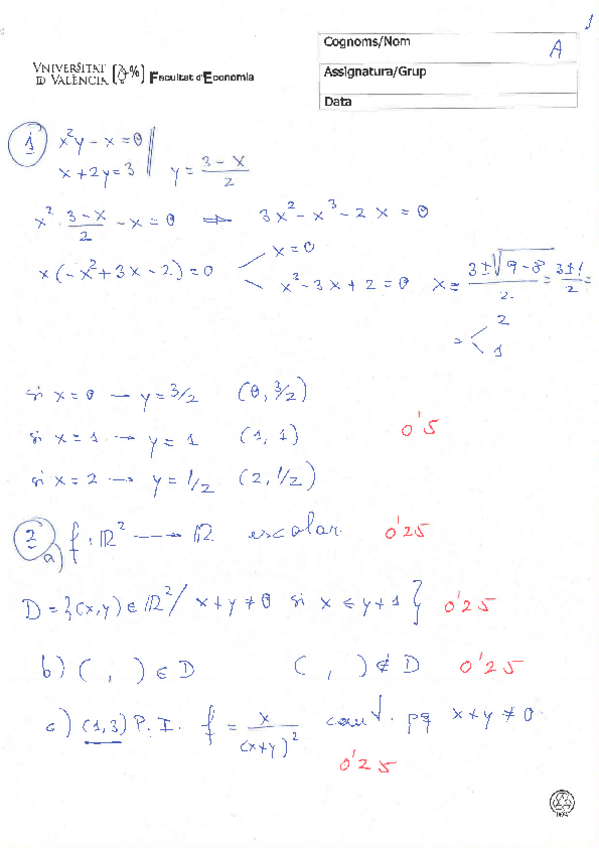 1
Cognoms/Nom
A
VNIVERSITAT
ID VALÈNCIA
Facultat d'Economia
Assignatura/Grup
Data
1 x²y - x = 0
x + 2y = 3 y = (3 - x)/2
x² · (3 - x)/2 - x = 0 ⟹ 3x² - x³ - 2x = 0
x(-x² + 3x - 2) = 0
x = 0
x² - 3x + 2 = 0 x = (3 ± √(9 - 8))/2 = (3 ± 1)/2 =
= 2
1
si x = 0 → y = 3/2 (0, 3/2)
si x = 1 → y = 1 (1, 1) 0'5
si x = 2 → y = 1/2 (2, 1/2)
2 a) f: ℝ² → ℝ escalar. 0'25
D = {(x,y) ∈ ℝ² / x+y ≠ 0 si x ≤ y+1} 0'25
b) ( , ) ∈ D ( , ) ∉ D 0'25
c) (1,3) P.I. f = x/(x+y)² cont. pq x+y ≠ 0.
0'25